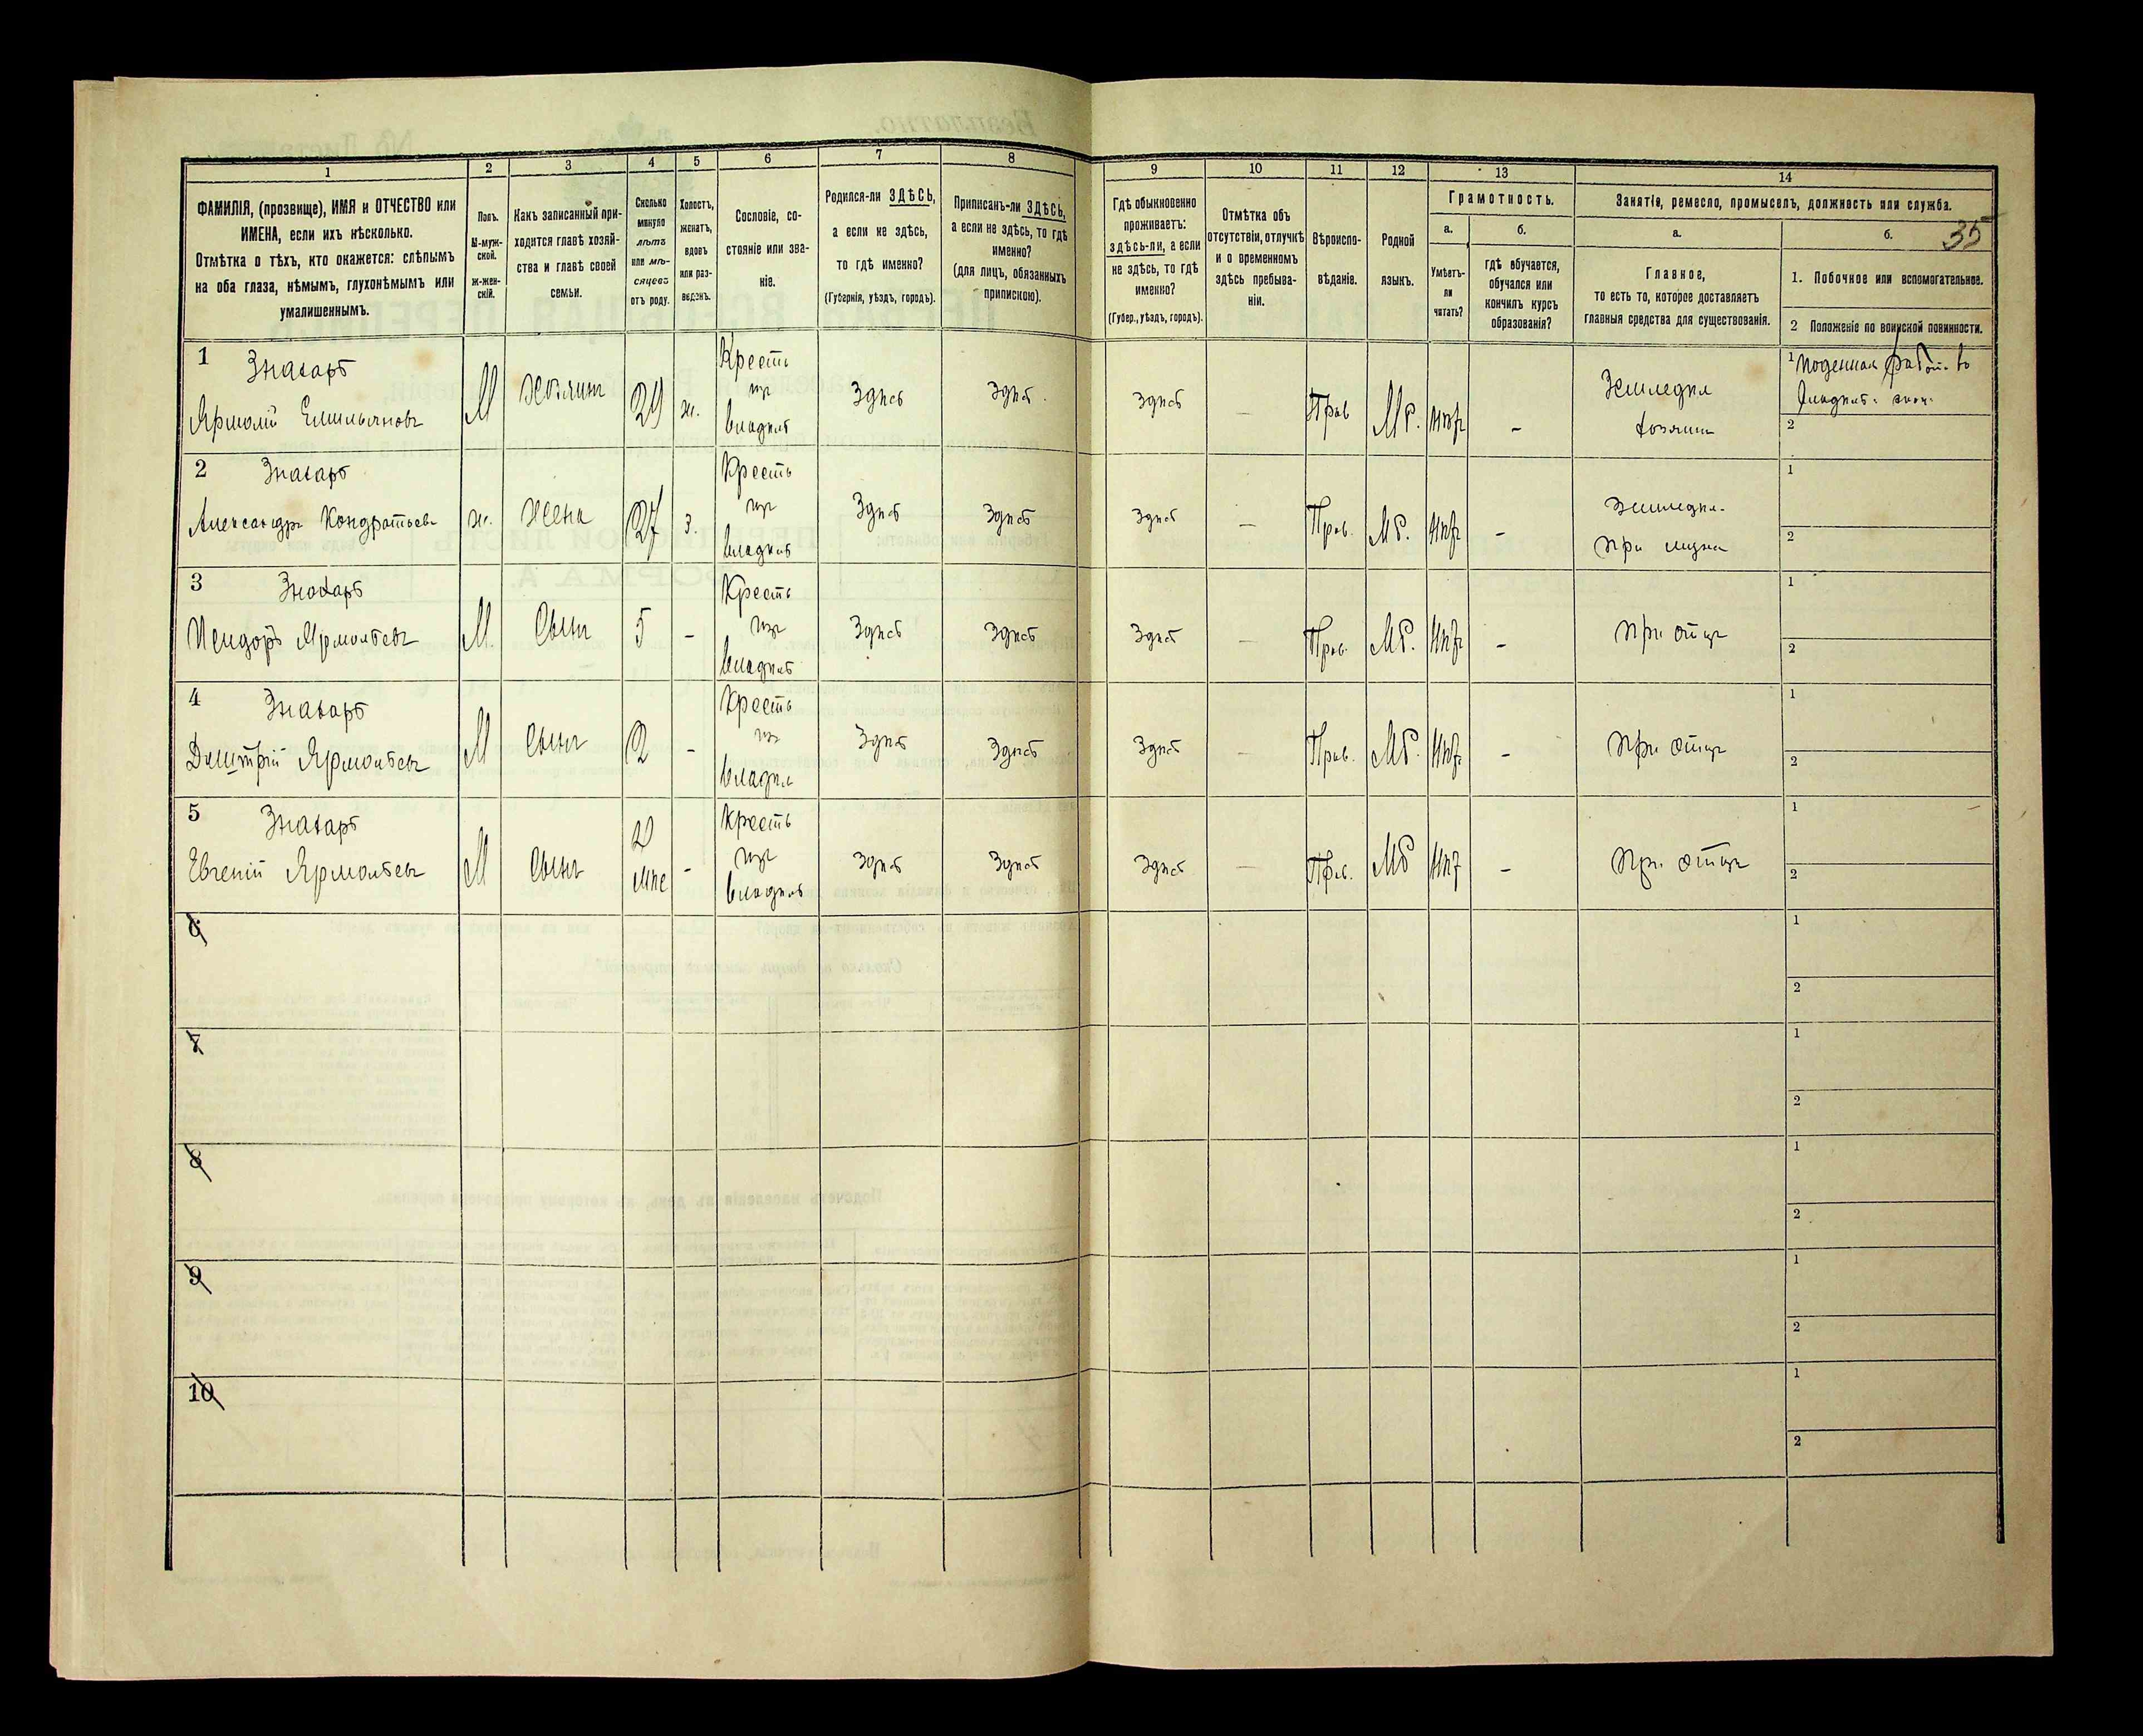 35
1
2
3
4
5
6
7
8
9
10
11
12
13
14
ФАМИЛІЯ, (прозвище), ИМЯ и ОТЧЕСТВО или
ИМЕНА, если ихъ нѣсколько.
Отмѣтка о тѣхъ, кто окажется: слѣпымъ
на оба глаза, нѣмымъ, глухонѣмымъ или
умалишеннымъ.
Полъ.
М-муж-
ской.
ж-жен-
скій.
Какъ записанный при-
ходится главѣ хозяй-
ства и главѣ своей
семьи.
Сколько
минуло
лѣтъ
или мѣ-
сяцевъ
отъ роду.
Холостъ,
женатъ,
вдовъ
или раз-
веденъ.
Сословіе, со-
стояніе или зва-
ніе.
Родился-ли ЗДѢСЬ,
а если не здѣсь,
то гдѣ именно?
(Губернія, уѣздъ, городъ).
Приписанъ-ли ЗДѢСЬ,
а если не здѣсь, то гдѣ
именно?
(для лицъ, обязанныхъ
припискою).
Гдѣ обыкновенно
проживаетъ:
здѣсь-ли, а если
не здѣсь, то гдѣ
именно?
(Губер., уѣздъ, городъ).
Отмѣтка объ
отсутствіи, отлучкѣ
и о временномъ
здѣсь пребыва-
ніи.
Вѣроиспо-
вѣданіе.
Родной
языкъ.
Грамотность.
а.
Умѣетъ-
ли
читать?
б.
гдѣ обучается,
обучался или
кончилъ курсъ
образованія?
Занятіе, ремесло, промыселъ, должность или служба.
а.
Главное,
то есть то, которое доставляетъ
главныя средства для существованія.
б.
1. Побочное или вспомогательное.
2 Положеніе по воинской повинности.
1 Знахарь
Ярмолй Емильяновъ
М
Хозяинъ
29
ж.
Кресть
изъ
владѣл
Здѣсь
Здѣсь
Здѣсь
—
Прав
Мб.
Нѣт
-
Земледѣл
хозяинъ
1 Поденная работ. въ
2
2 Знахарь
Александра Кондратьева
ж.
Жена
27
з.
Кресть
изъ
владѣл
Здѣсь
Здѣсь
Здѣсь
—
Прав.
Мб.
Нѣт
-
Земледѣл.
При мужѣ
1
2
3 Знахарь
Исидоръ Ярмольевъ
М.
Сынъ
5
-
Кресть
изъ
владѣл
Здѣсь
Здѣсь
Здѣсь
—
Прав.
Мб.
Нѣт
-
При отцѣ
1
2
4 Знахарь
Дмитрій Ярмольевъ
М
Сынъ
2
-
Кресть
изъ
владѣл
Здѣсь
Здѣсь
Здѣсь
—
Прав.
Мб.
Нѣт
-
При отцѣ
1
2
5 Знахарь
Евгеній Ярмольевъ
М
Сынъ
2
мѣс
-
Кресть
изъ
владѣл
Здѣсь
Здѣсь
Здѣсь
—
Прав.
Мб
Нѣт
-
При отцѣ
1
2
6
1
2
7
1
2
8
1
2
9
1
2
10
1
2